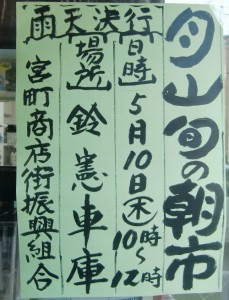 月山旬の朝市
日時 5月10日(木)10時〜12時
場所 鈴憲車庫
雨天決行
宮町商店街振興組合